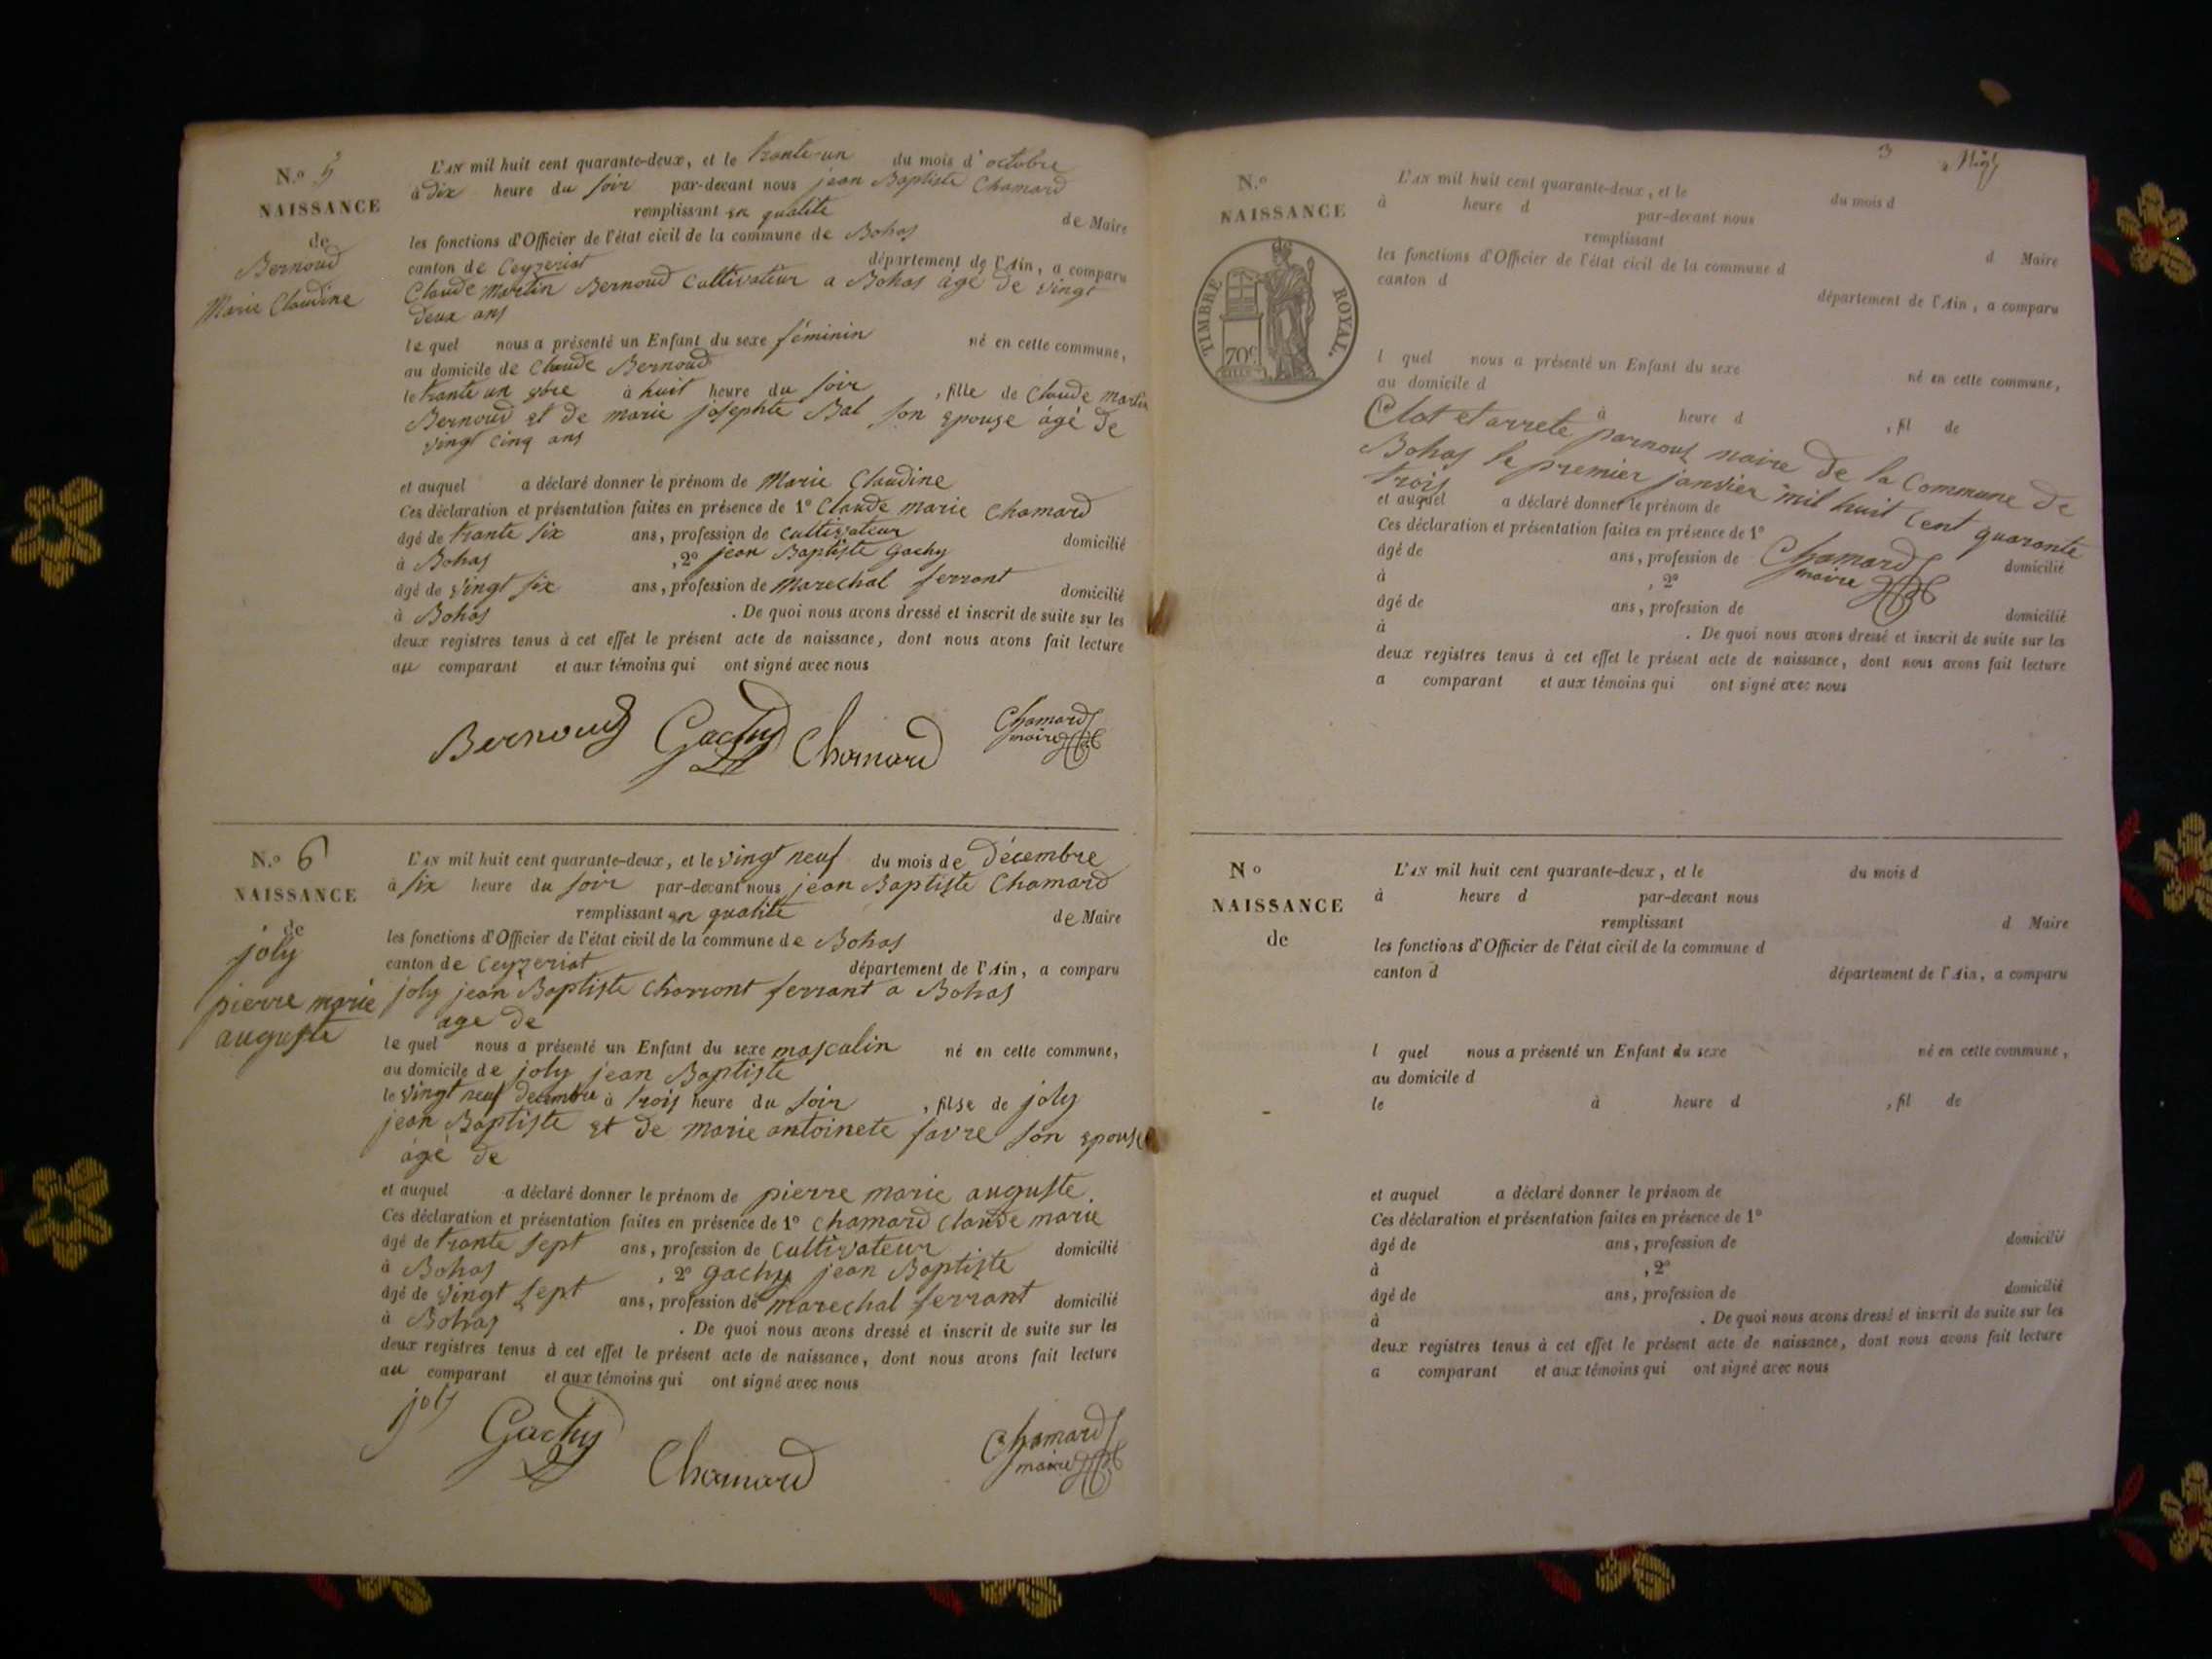 N.o 5
NAISSANCE
de
Bernoud
Marie Claudine
L'AN mil huit cent quarante-deux, et le trante-un du mois d'octobre
à dix heure du soir par-devant nous jean Baptiste Chamard
remplissant en qualite de Maire
les fonctions d'Officier de l'état civil de la commune de Bohas
canton de Ceyzeriat département de l'Ain, a comparu
Claude Martin Bernoud Cultivateur a Bohas âgé de vingt
deux ans
le quel nous a présenté un Enfant du sexe féminin né en cette commune,
au domicile de Claude Bernoud
le trante un à huit heure du soir , fille de Claude martin
Bernoud et de marie josephte Bal son epouse âgé de
vingt cinq ans
et auquel a déclaré donner le prénom de Marie Claudine
Ces déclaration et présentation faites en présence de 1o Claude marie Chamard
âgé de trante six ans, profession de cultivateur domicilié
à Bohas , 2o jean Baptiste Gachy
âgé de vingt six ans, profession de marechal ferrant domicilié
à Bohas . De quoi nous avons dressé et inscrit de suite sur les
deux registres tenus à cet effet le présent acte de naissance, dont nous avons fait lecture
au comparant et aux témoins qui ont signé avec nous
Bernoud Gachy Chamard Chamard
maire
N.o 6
NAISSANCE
de
joly
pierre marie
auguste
L'AN mil huit cent quarante-deux, et le vingt neuf du mois de Décembre
à six heure du soir par-devant nous jean Baptiste Chamard
remplissant en qualite de Maire
les fonctions d'Officier de l'état civil de la commune de Bohas
canton de Ceyzeriat département de l'Ain, a comparu
joly jean Baptiste charront ferrant a Bohas
age de
le quel nous a présenté un Enfant du sexe masculin né en cette commune,
au domicile de joly jean Baptiste
le vingt neuf Decembre à trois heure du soir , filse de joly
jean Baptiste et de marie antoinete favre son epouse
âgé de
et auquel a déclaré donner le prénom de pierre marie auguste.
Ces déclaration et présentation faites en présence de 1o chamard claude marie
âgé de trante sept ans, profession de cultivateur domicilié
à Bohas , 2o gachy jean Baptiste
âgé de vingt sept ans, profession de marechal ferrant domicilié
à Bohas . De quoi nous avons dressé et inscrit de suite sur les
deux registres tenus à cet effet le présent acte de naissance, dont nous avons fait lecture
au comparant et aux témoins qui ont signé avec nous
joly Gachy Chamard Chamard
maire
3
N.o
NAISSANCE
TIMBRE ROYAL.
70c
L'AN mil huit cent quarante-deux, et le du mois d
à heure d par-devant nous
remplissant d Maire
les fonctions d'Officier de l'état civil de la commune d
canton d département de l'Ain, a comparu
l quel nous a présenté un Enfant du sexe né en cette commune,
au domicile d
le à heure d , fil de
Clot et arrete parnous maire de la Commune de
Bohas le premier janvier mil huit cent quarante
trois
et auquel a déclaré donner le prénom de
Ces déclaration et présentation faites en présence de 1o
âgé de ans, profession de domicilié
Chamard
maire
à , 2o
âgé de ans, profession de domicilié
à . De quoi nous avons dressé et inscrit de suite sur les
deux registres tenus à cet effet le présent acte de naissance, dont nous avons fait lecture
a comparant et aux témoins qui ont signé avec nous
No
NAISSANCE
de
L'AN mil huit cent quarante-deux, et le du mois d
à heure d par-devant nous
remplissant d Maire
les fonctions d'Officier de l'état civil de la commune d
canton d département de l'Ain, a comparu
l quel nous a présenté un Enfant du sexe né en cette commune,
au domicile d
le à heure d , fil de
et auquel a déclaré donner le prénom de
Ces déclaration et présentation faites en présence de 1o
âgé de ans, profession de domicilié
à , 2o
âgé de ans, profession de domicilié
à . De quoi nous avons dressé et inscrit de suite sur les
deux registres tenus à cet effet le présent acte de naissance, dont nous avons fait lecture
a comparant et aux témoins qui ont signé avec nous